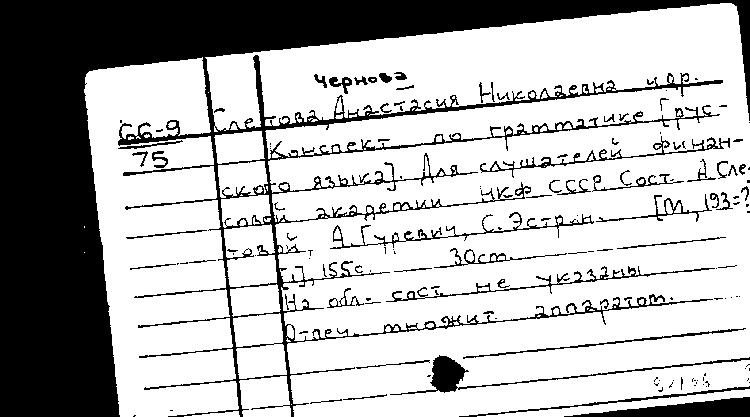 Чернова
66-9 Слетова, Анастасия Николаевна и др.
75 Конспект по грамматике [рус-
ского языка]. Для слушателей финан-
совой академии НКФ СССР Сост. А. Сле-
товой, А. Гуревич, С. Эстрин. [М., 193=?
[1], 155с. 30см.
На обл. сост. не указаны
Отпеч. множит. аппаратом.